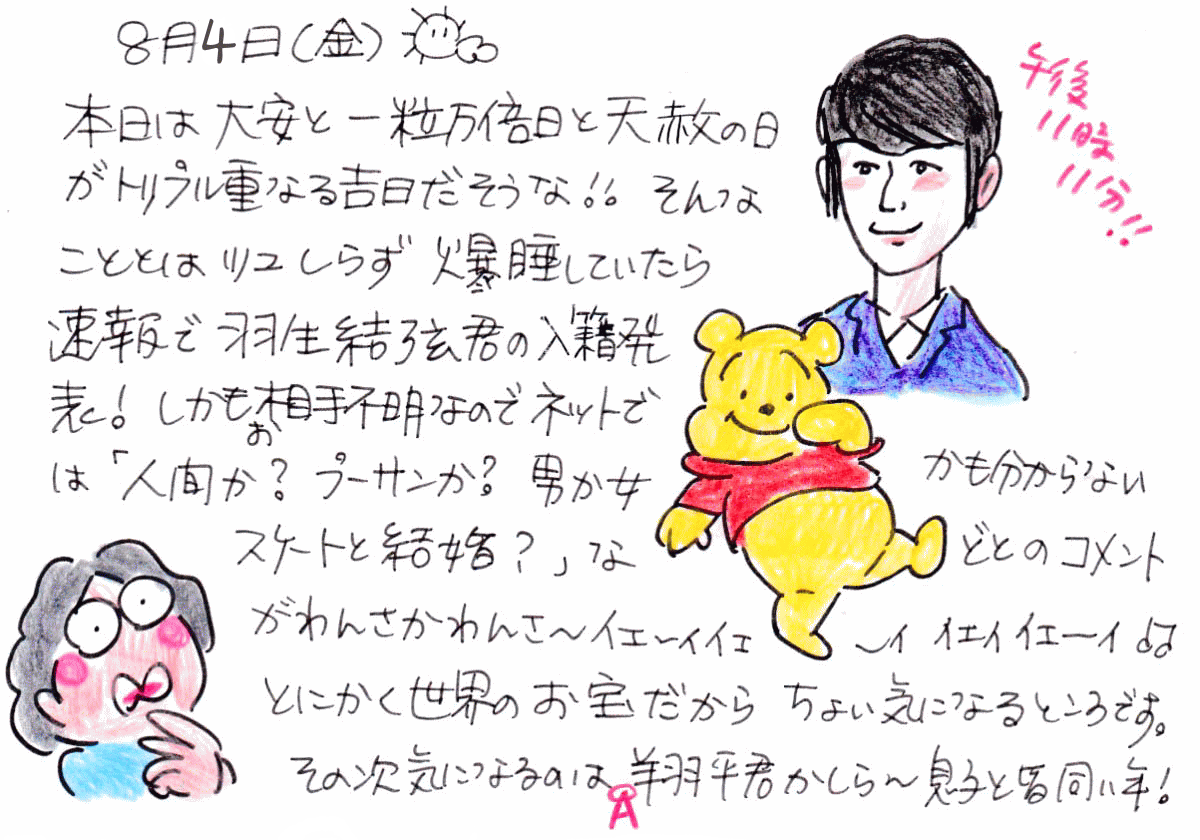 8月4日(金)
午後
11時
11分!!
本日は大安と一粒万倍日と天赦の日
がトリプル重なる吉日だそうな!! そんな
こととはツユしらず爆睡していたら
速報で羽生結弦君の入籍発
表! しかもお相手不明なのでネットで
は「人間か? プーサンか? 男か女かも分からない
スケートと結婚?」などとのコメント
がわんさかわんさ〜イェーィイェ〜ィ イェィイェーィ♫
とにかく世界のお宝だから ちょい気になるところです。
その次気になるのは翔平君かしら〜息子と皆同い年!
A